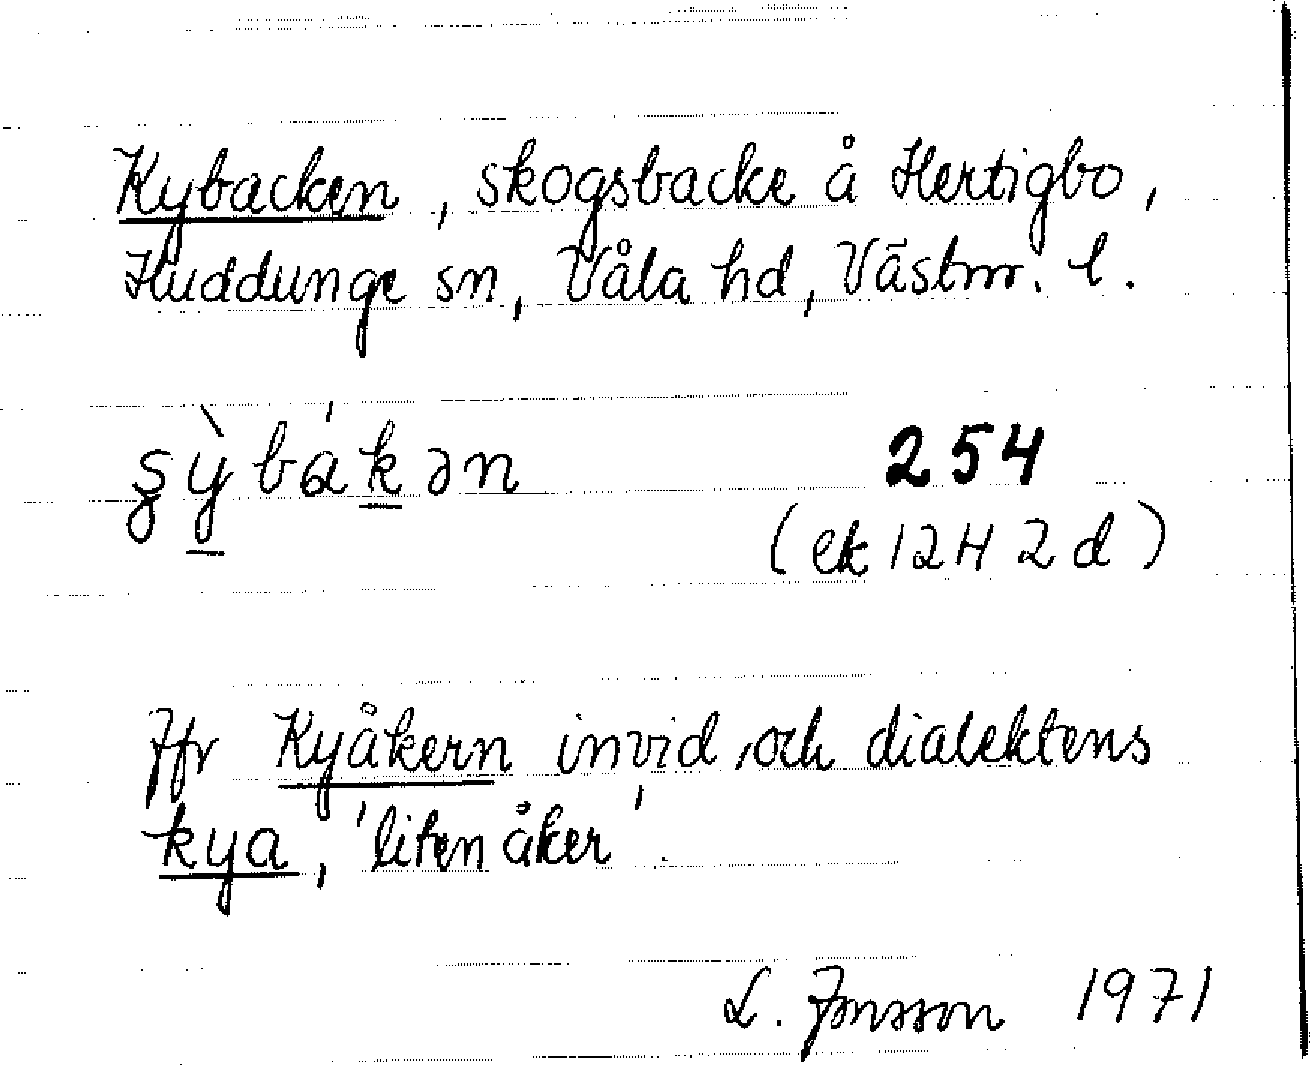 Kybacken, skogsbacke å Hertigbo,
Huddunge sn, Våla hd, Västm. l.
ʂỳbákən 254
(ek 12H 2d)
Jfr Kyåkern invid, och dialektens
kya, 'liten åker'.
L. Jonsson 1971